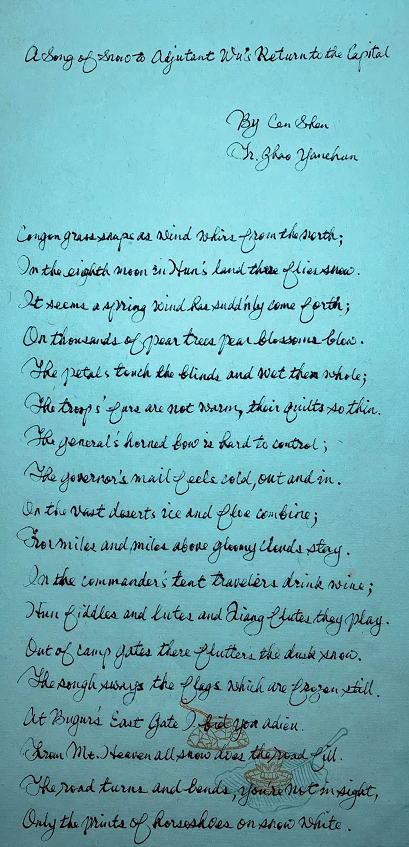 A Song of Snow to Adjutant Wu's Return to the Capital
By Cen Shen
Tr. Zhao Yanchun
Congon grass snaps as wind whirs from the north;
In the eighth moon in Hun's land there flies snow.
It seems a spring wind has sudd'nly come forth;
On thousands of pear trees pear blossoms blow.
The petals touch the blinds and wet them whole;
The troops' furs are not warm, their quilts so thin.
The general's horned bow is hard to control;
The governor's mail feels cold, out and in.
On the vast deserts ice and floe combine;
For miles and miles above gloomy clouds stay.
In the commander's tent travelers drink wine;
Hun fiddles and lutes and Qiang flutes they play.
Out of camp gates there flutters the dusk snow.
The sough sways the flags which are frozen still.
At Bugur's East Gate I bid you adieu.
From Mt. Heaven all snow does the road fill.
The road turns and bends, you're not in sight,
Only the prints of horseshoes on snow white.